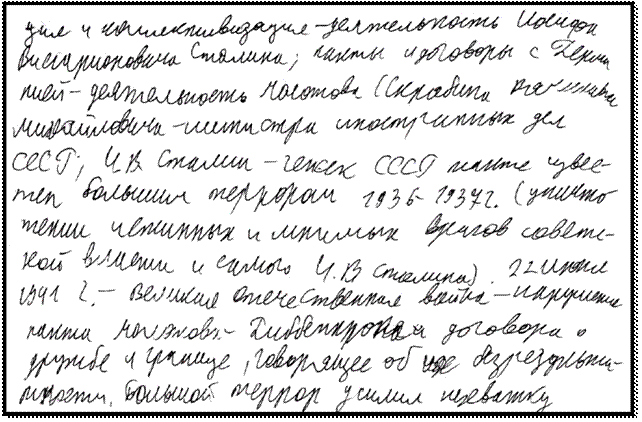 ция и коллективизация - деятельность Иосифа
Виссарионовича Сталина; пакты и договоры с Герма
нией - деятельность Молотова (Скрябина Вячеслава
Михайловича - министра иностранных дел
СССР; И.В Сталин - генсек СССР также извес-
тен большим террором 1936-1937г. (уничто
жении истинных и мнимых врагов советс-
кой власти и самого И.В Сталина). 22 июня
1941 г. - Великая Отечественная война - нарушение
пакта Молотова - Риббентропа и договора о
дружбе и границе, говорящее об их безрезульта-
тности. Большой террор усилил нехватку